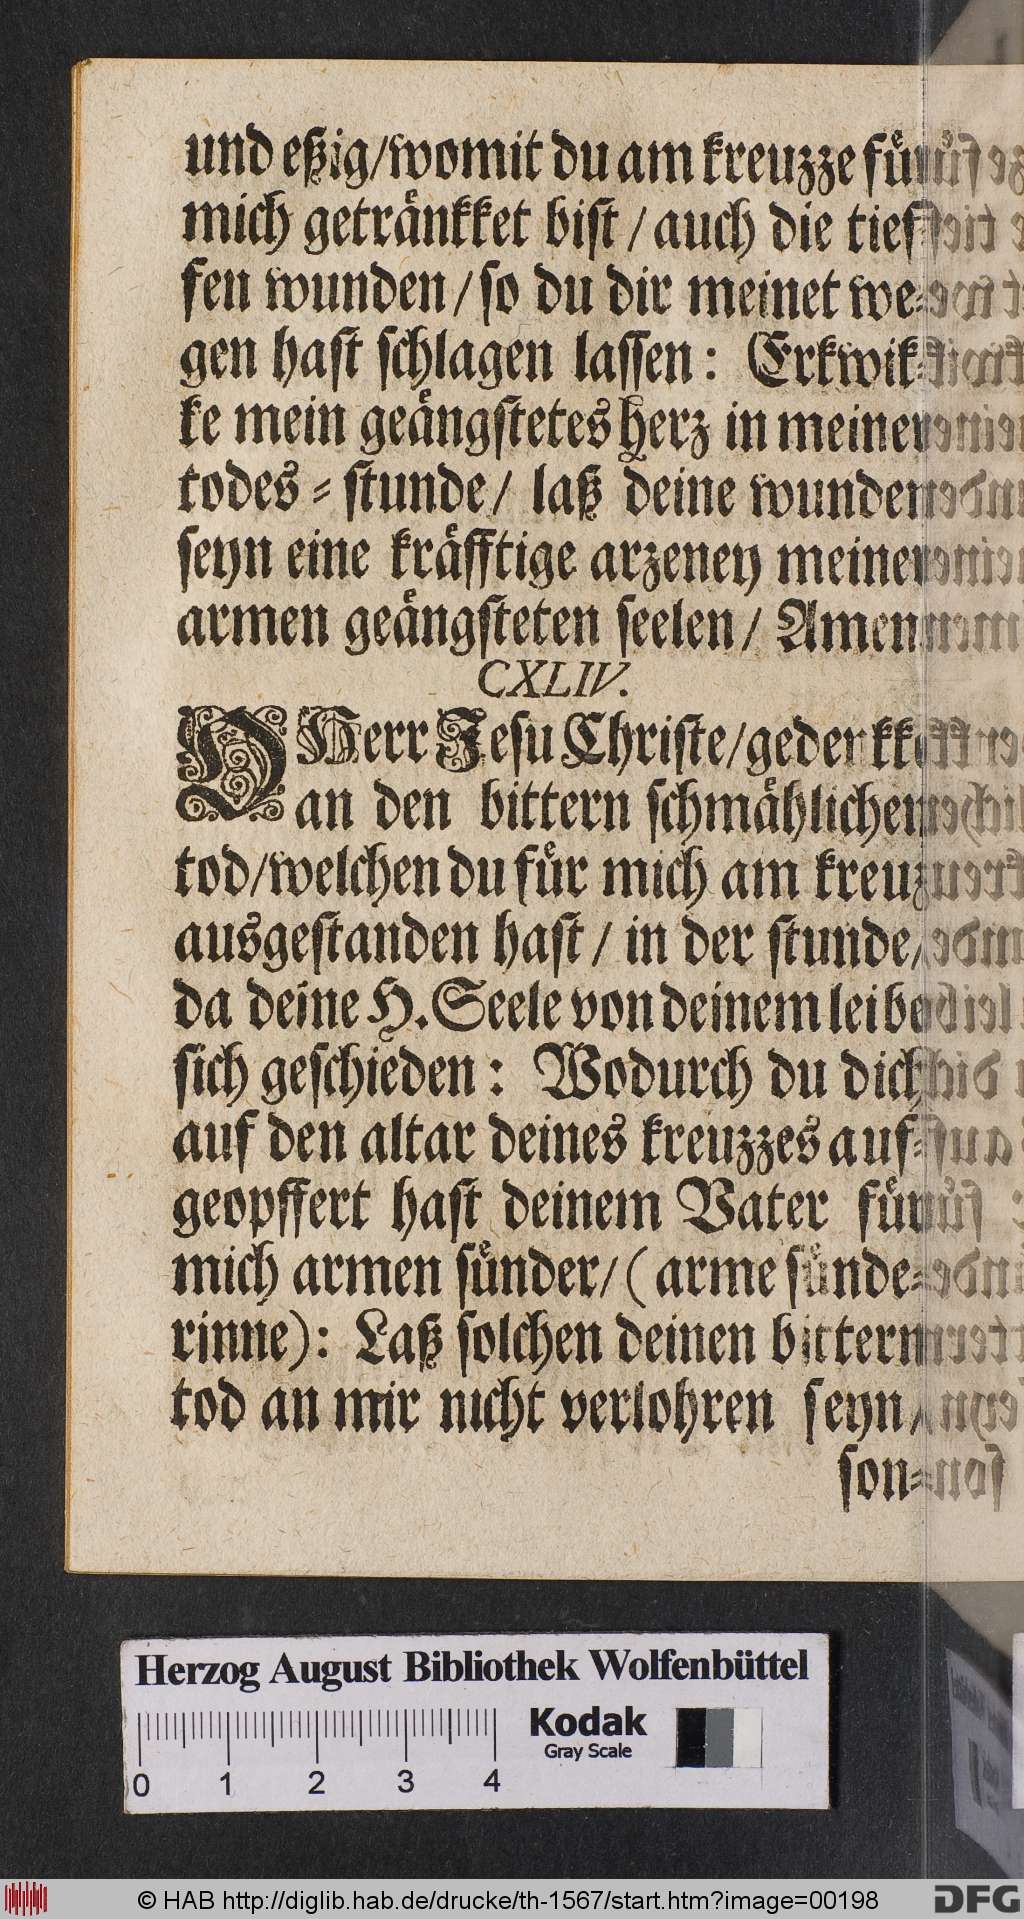 und eßig/womit du am kreuzze fuͤr
mich getraͤnkket bist / auch die tief-
fen wunden / so du dir meinet we-
gen hast schlagen lassen: Erkwik-
ke mein geaͤngstetes herz in meiner
todes-stunde / laß deine wunden
seyn eine kraͤfftige arzeney meiner
armen geaͤngsteten seelen / Amen
CXLIV.
O Herr Jesu Christe/gedenkke
an den bittern schmaͤhlichen
tod/welchen du fuͤr mich am kreuz
ausgestanden hast / in der stunde/
da deine H. Seele von deinem leibe
sich geschieden: Wodurch du dich
auf den altar deines kreuzzes auf-
geopffert hast deinem Vater fuͤr
mich armen suͤnder/ (arme suͤnde-
rinne): Laß solchen deinen bittern
tod an mir nicht verlohren seyn/
son-
Herzog August Bibliothek Wolfenbüttel
Kodak
Gray Scale
0 1 2 3 4
© HAB http://diglib.hab.de/drucke/th-1567/start.htm?image=00198
DFG